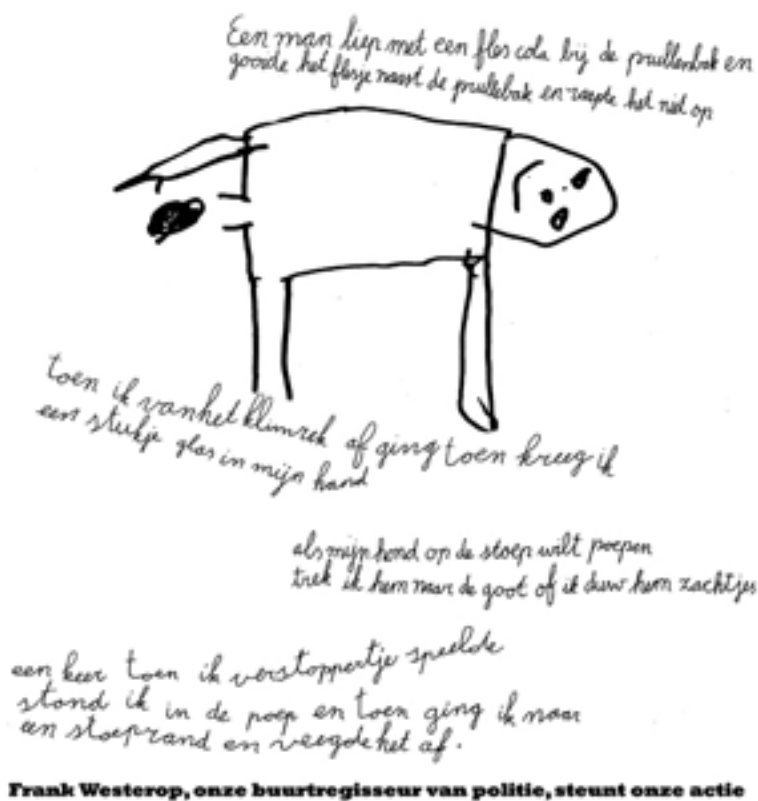 Een man liep met een fles cola bij de prullenbak en
gooide het flesje naast de prullebak en raapte het niet op
toen ik vanhet klimrek af ging toen kreeg ik
een stukje glas in mijn hand
als mijn hond op de stoep wilt poepen
trek ik hem naar de goot of ik duw hem zachtjes
een keer toen ik verstoppertje speelde
stond ik in de poep en toen ging ik naar
een stoeprand en veegde het af.
Frank Westerop, onze buurtregisseur van politie, steunt onze actie